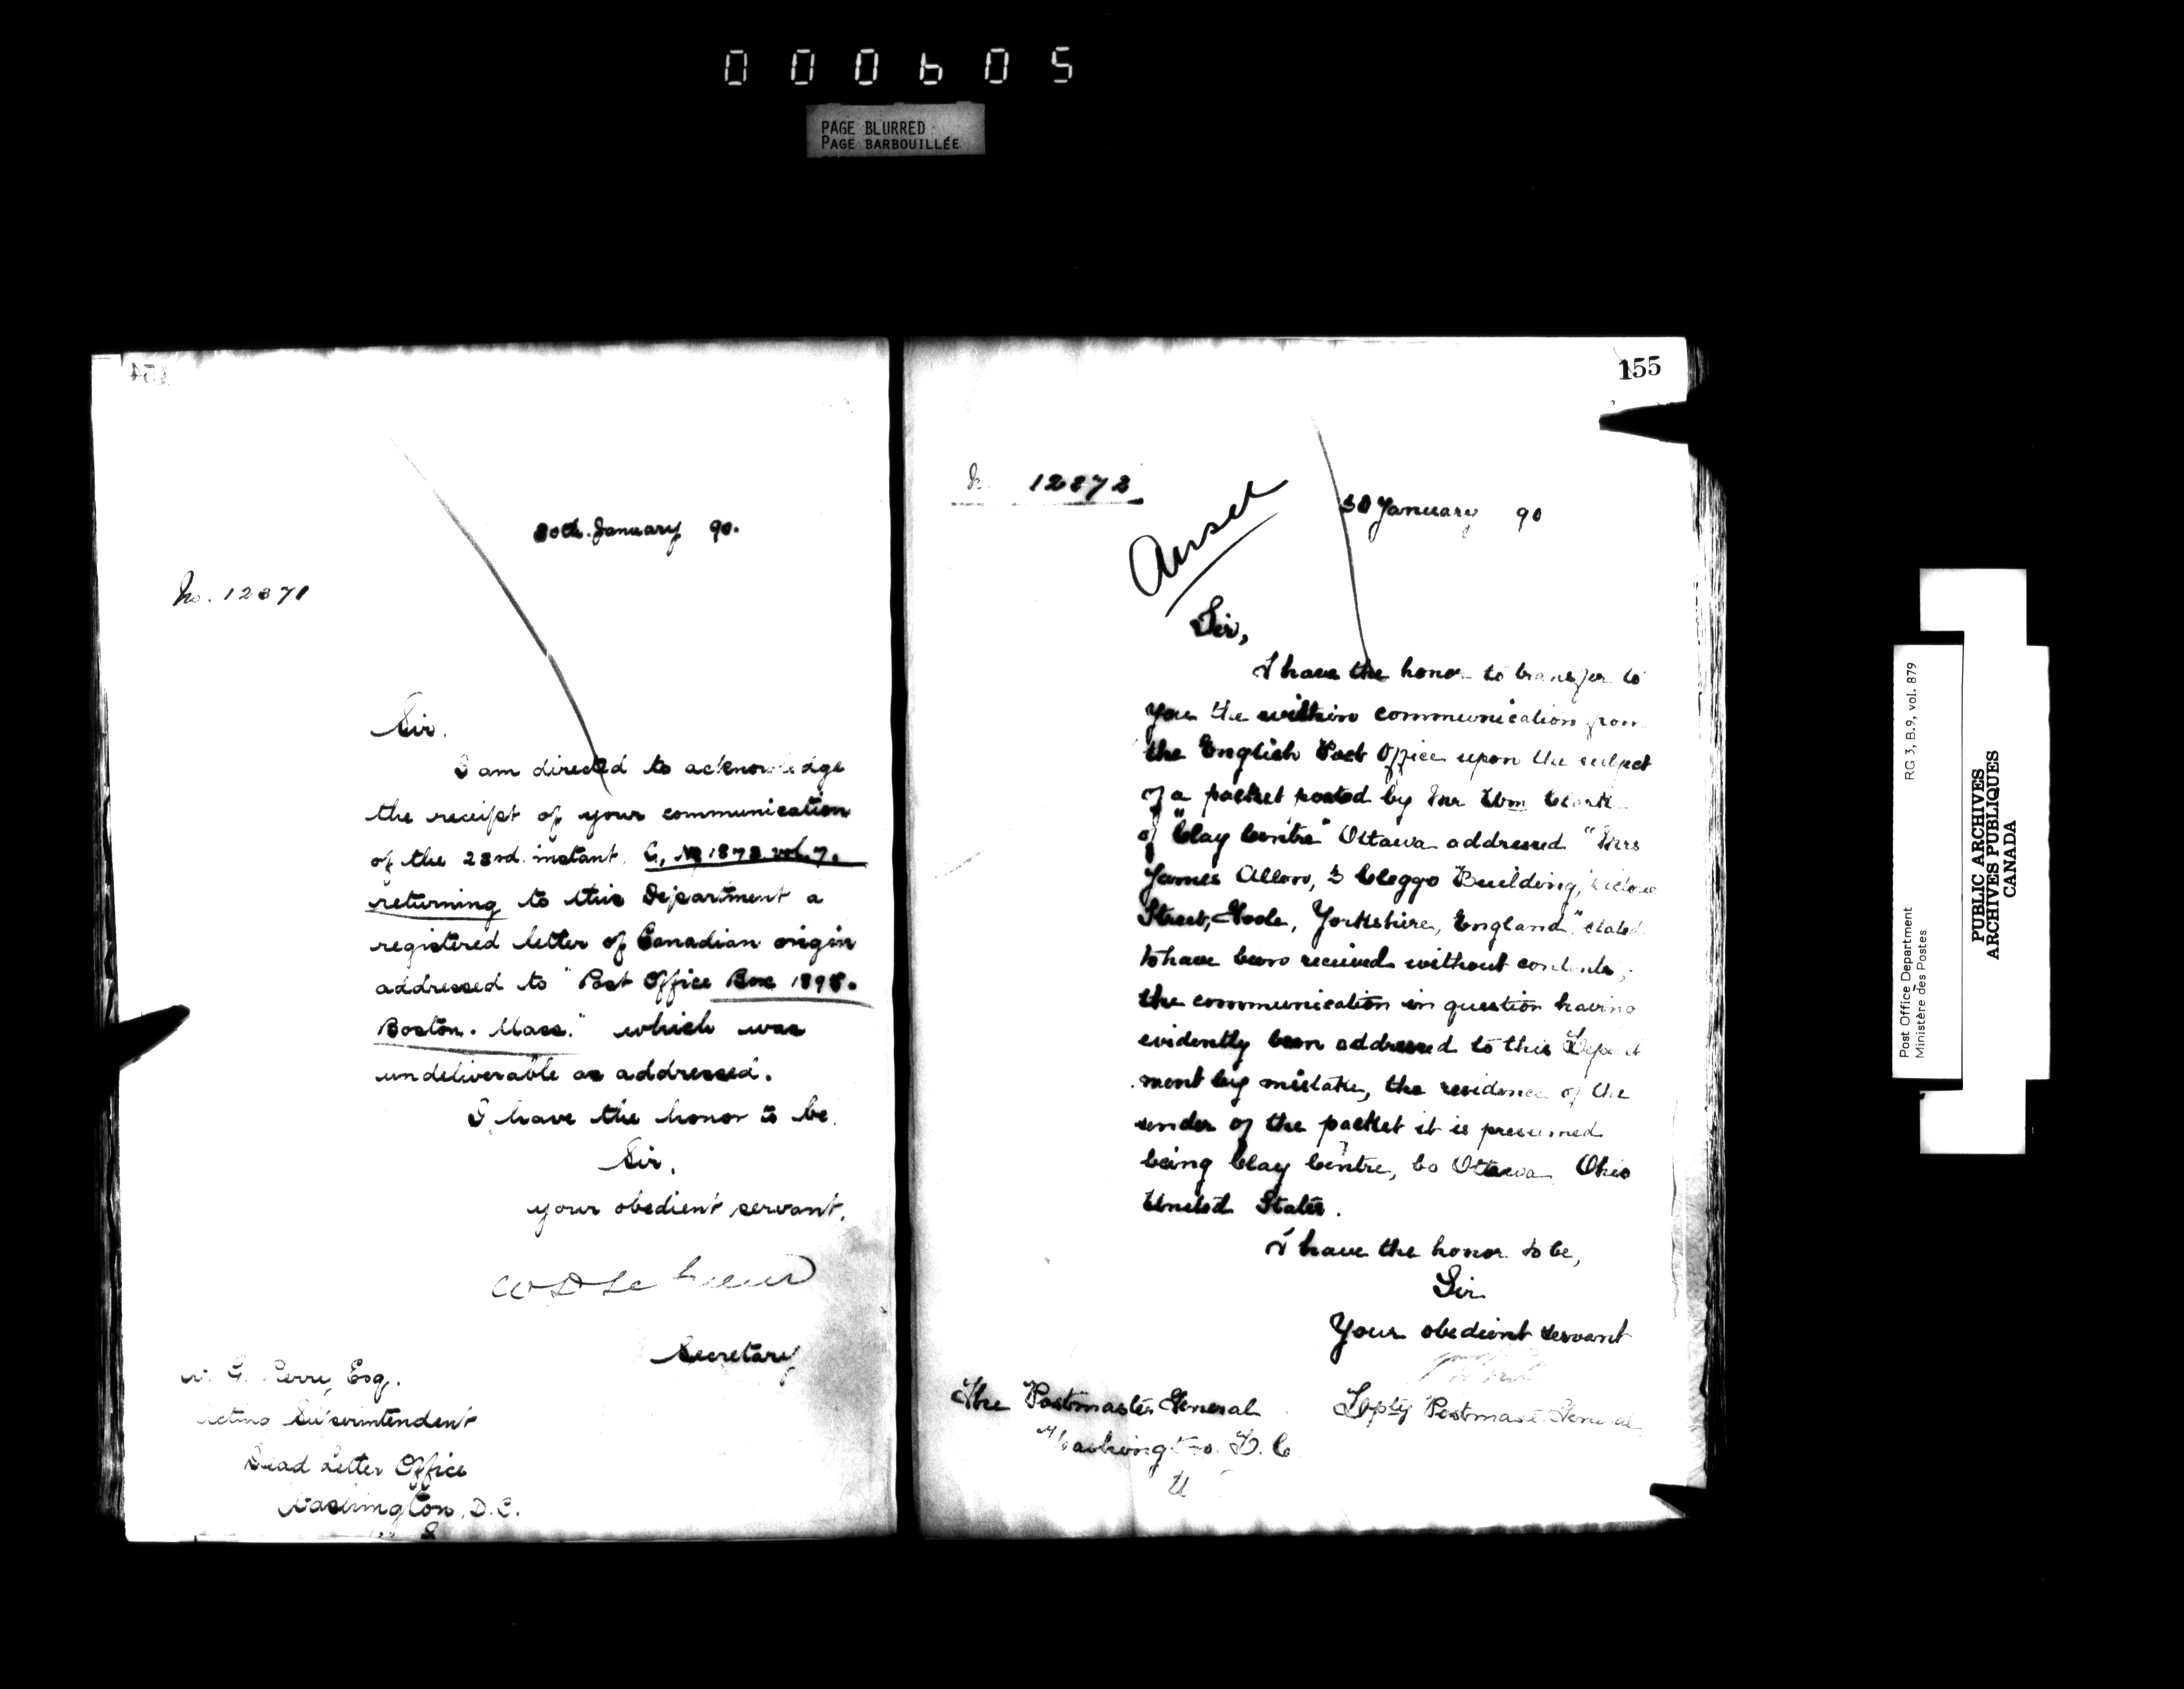 000605
PAGE BLURRED
PAGE BARBOUILLÉE
154
30th. January 90.
No. 12371
Sir.
I am directed to acknowledge
the receipt of your communication
of the 23rd. instant. C, No 1873. vol. 7.
returning to this Department a
registered letter of Canadian origin
addressed to "Post Office Box 1898.
Boston. Mass." which was
undeliverable as addressed.
I have the honor to be.
Sir.
your obedient servant.
Secretary
G. Perry Esq.
Acting Superintendent
Dead Letter Office
Washington, D.C.
155
No. 12373
30 January 90
Ansd
Sir,
I have the honor to transfer to
you the within communication from
the English Post Office upon the subject
of a packet posted by Mr Wm Clark
of "Clay Centre" Ottawa addressed "Mrs
James Allon, 3 Cleggs Building, Victoria
Street, Goole, Yorkshire, England," stated
to have been received without contents;
the communication in question having
evidently been addressed to this Depart
ment by mistake, the residence of the
sender of the packet it is presumed
being Clay Centre, Co Ottawa Ohio
United States.
I have the honor to be,
Sir
Your obedient servant
Depty Postmaster General
The Postmaster General
Washington. D. C
U
Post Office Department
Ministère des Postes
RG 3, B.9, vol. 879
PUBLIC ARCHIVES
ARCHIVES PUBLIQUES
CANADA